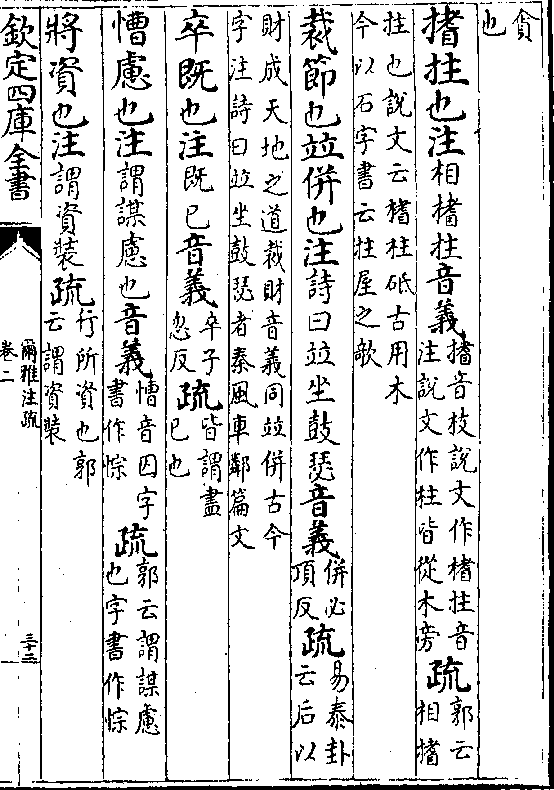 貪
也
搘拄也注相榰拄音義搘音枝說文作榰拄音
注說文作柱皆從木旁疏郭云
相搘
拄也說文云榰柱砥古用木
今以石字書云拄屋之欹
裁節也竝併也注詩曰竝坐鼓瑟音義併必
項反疏易泰卦
云后以
財成天地之道裁財音義同竝併古今
字注詩曰竝坐鼓瑟者秦風車鄰篇文
卒既也注既已音義卒子
忽反疏皆謂盡
已也
慒慮也注謂謀慮也音義慒音囚字
書作悰疏郭云謂謀慮
也字書作悰
將資也注謂資裝疏行所資也郭
云謂資裝
欽定四庫全書
爾雅注疏
卷二
三十二